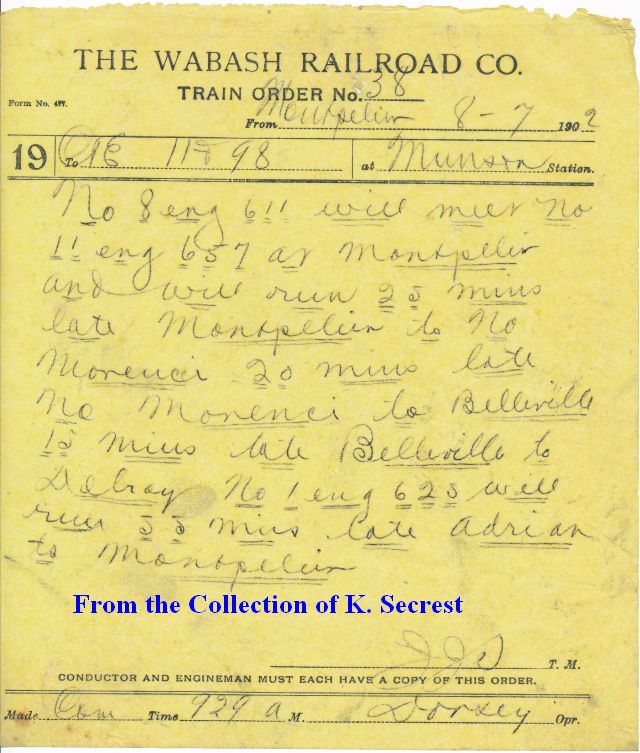 THE WABASH RAILROAD CO.
TRAIN ORDER No. 38
Form No. 477.
From Montpelier 8-7 1902
19 To C&E 11 98 at Munson Station.
No 8 eng 611 will meet No
11 eng 657 at Montpelier
and will run 25 mins
late Montpelier to No
Morenci 20 mins late
No Morenci to Belleville
15 mins late Belleville to
Delray No 1 eng 625 will
run 55 mins late Adrian
to Montpelier
From the Collection of K. Secrest
JJS T. M.
CONDUCTOR AND ENGINEMAN MUST EACH HAVE A COPY OF THIS ORDER.
Made Com Time 929 a M. Dorsey Opr.